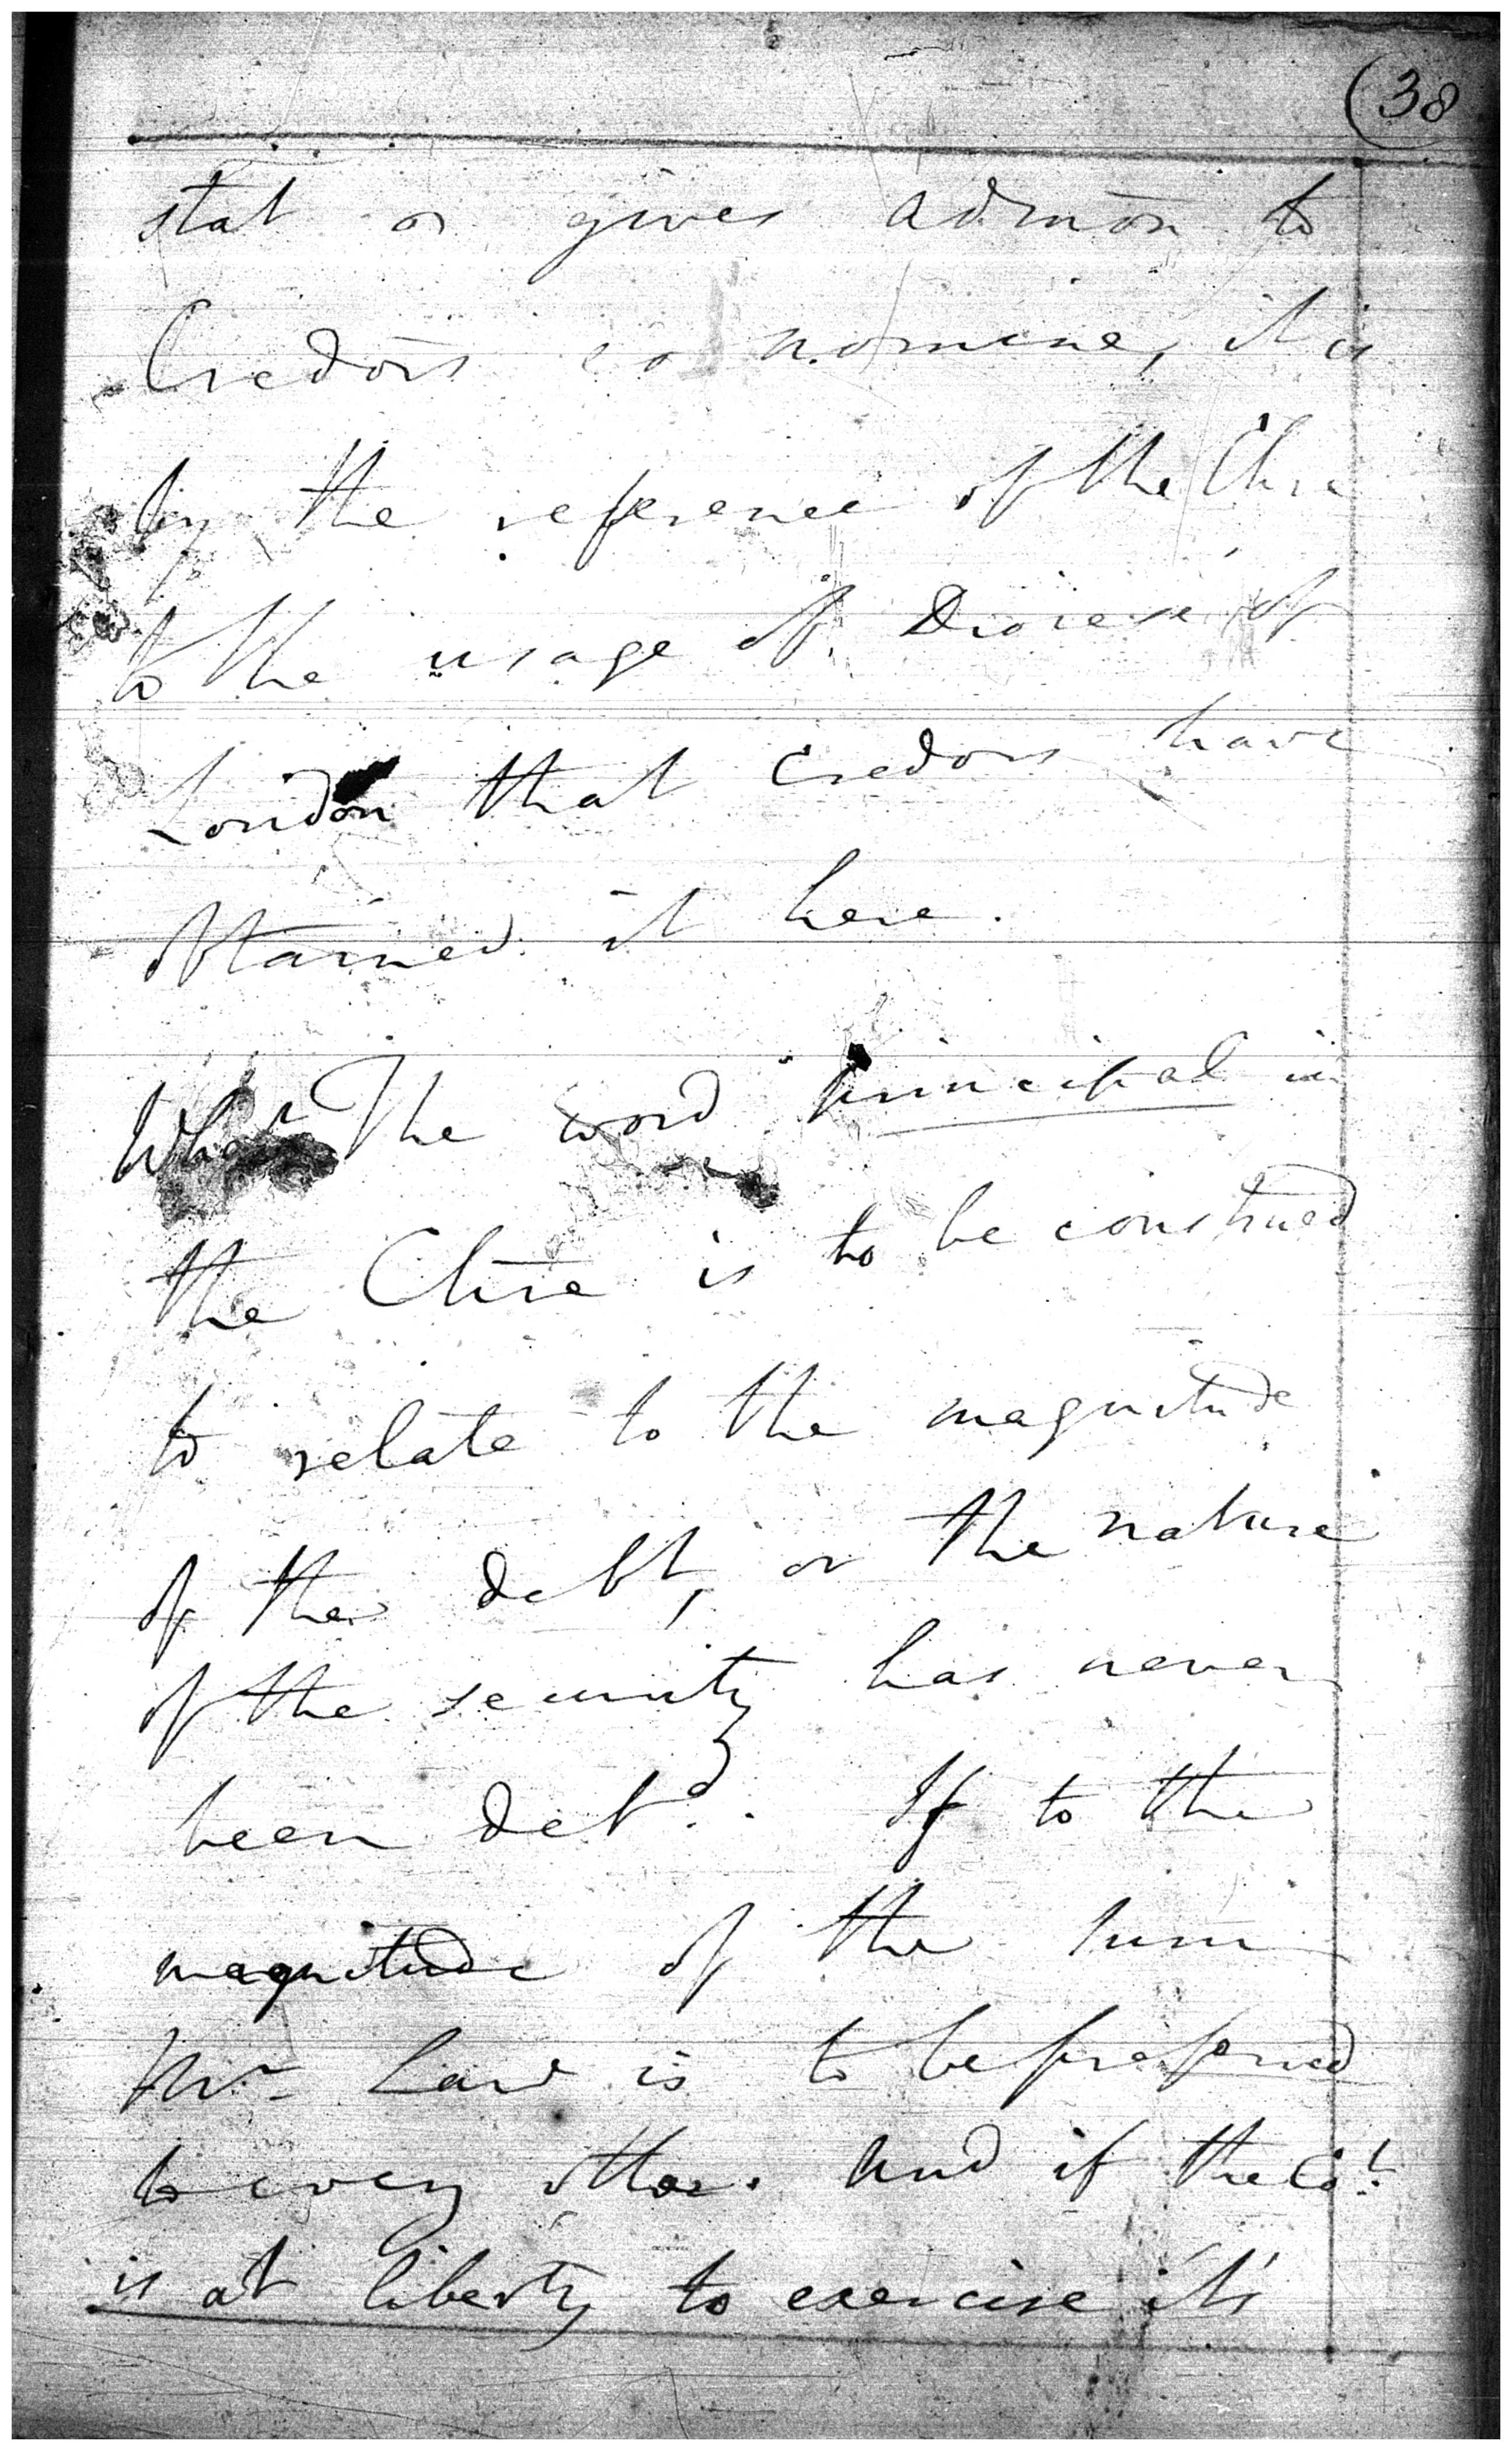 (38
stat or gives admōn to
Credōrs eo nomine, it is
by the reference of the Chre
to the usage of Diocese of
London that Credors have
obtained it here.
What The word principal in
the Chre is to be construed
to relate to the magnitude
of the debt, or the nature
of the security has never
been detd. If to the
magnitude of the sum
Mr Law is to be preferred
to every other. And if the Cot
is at liberty to exercise it's